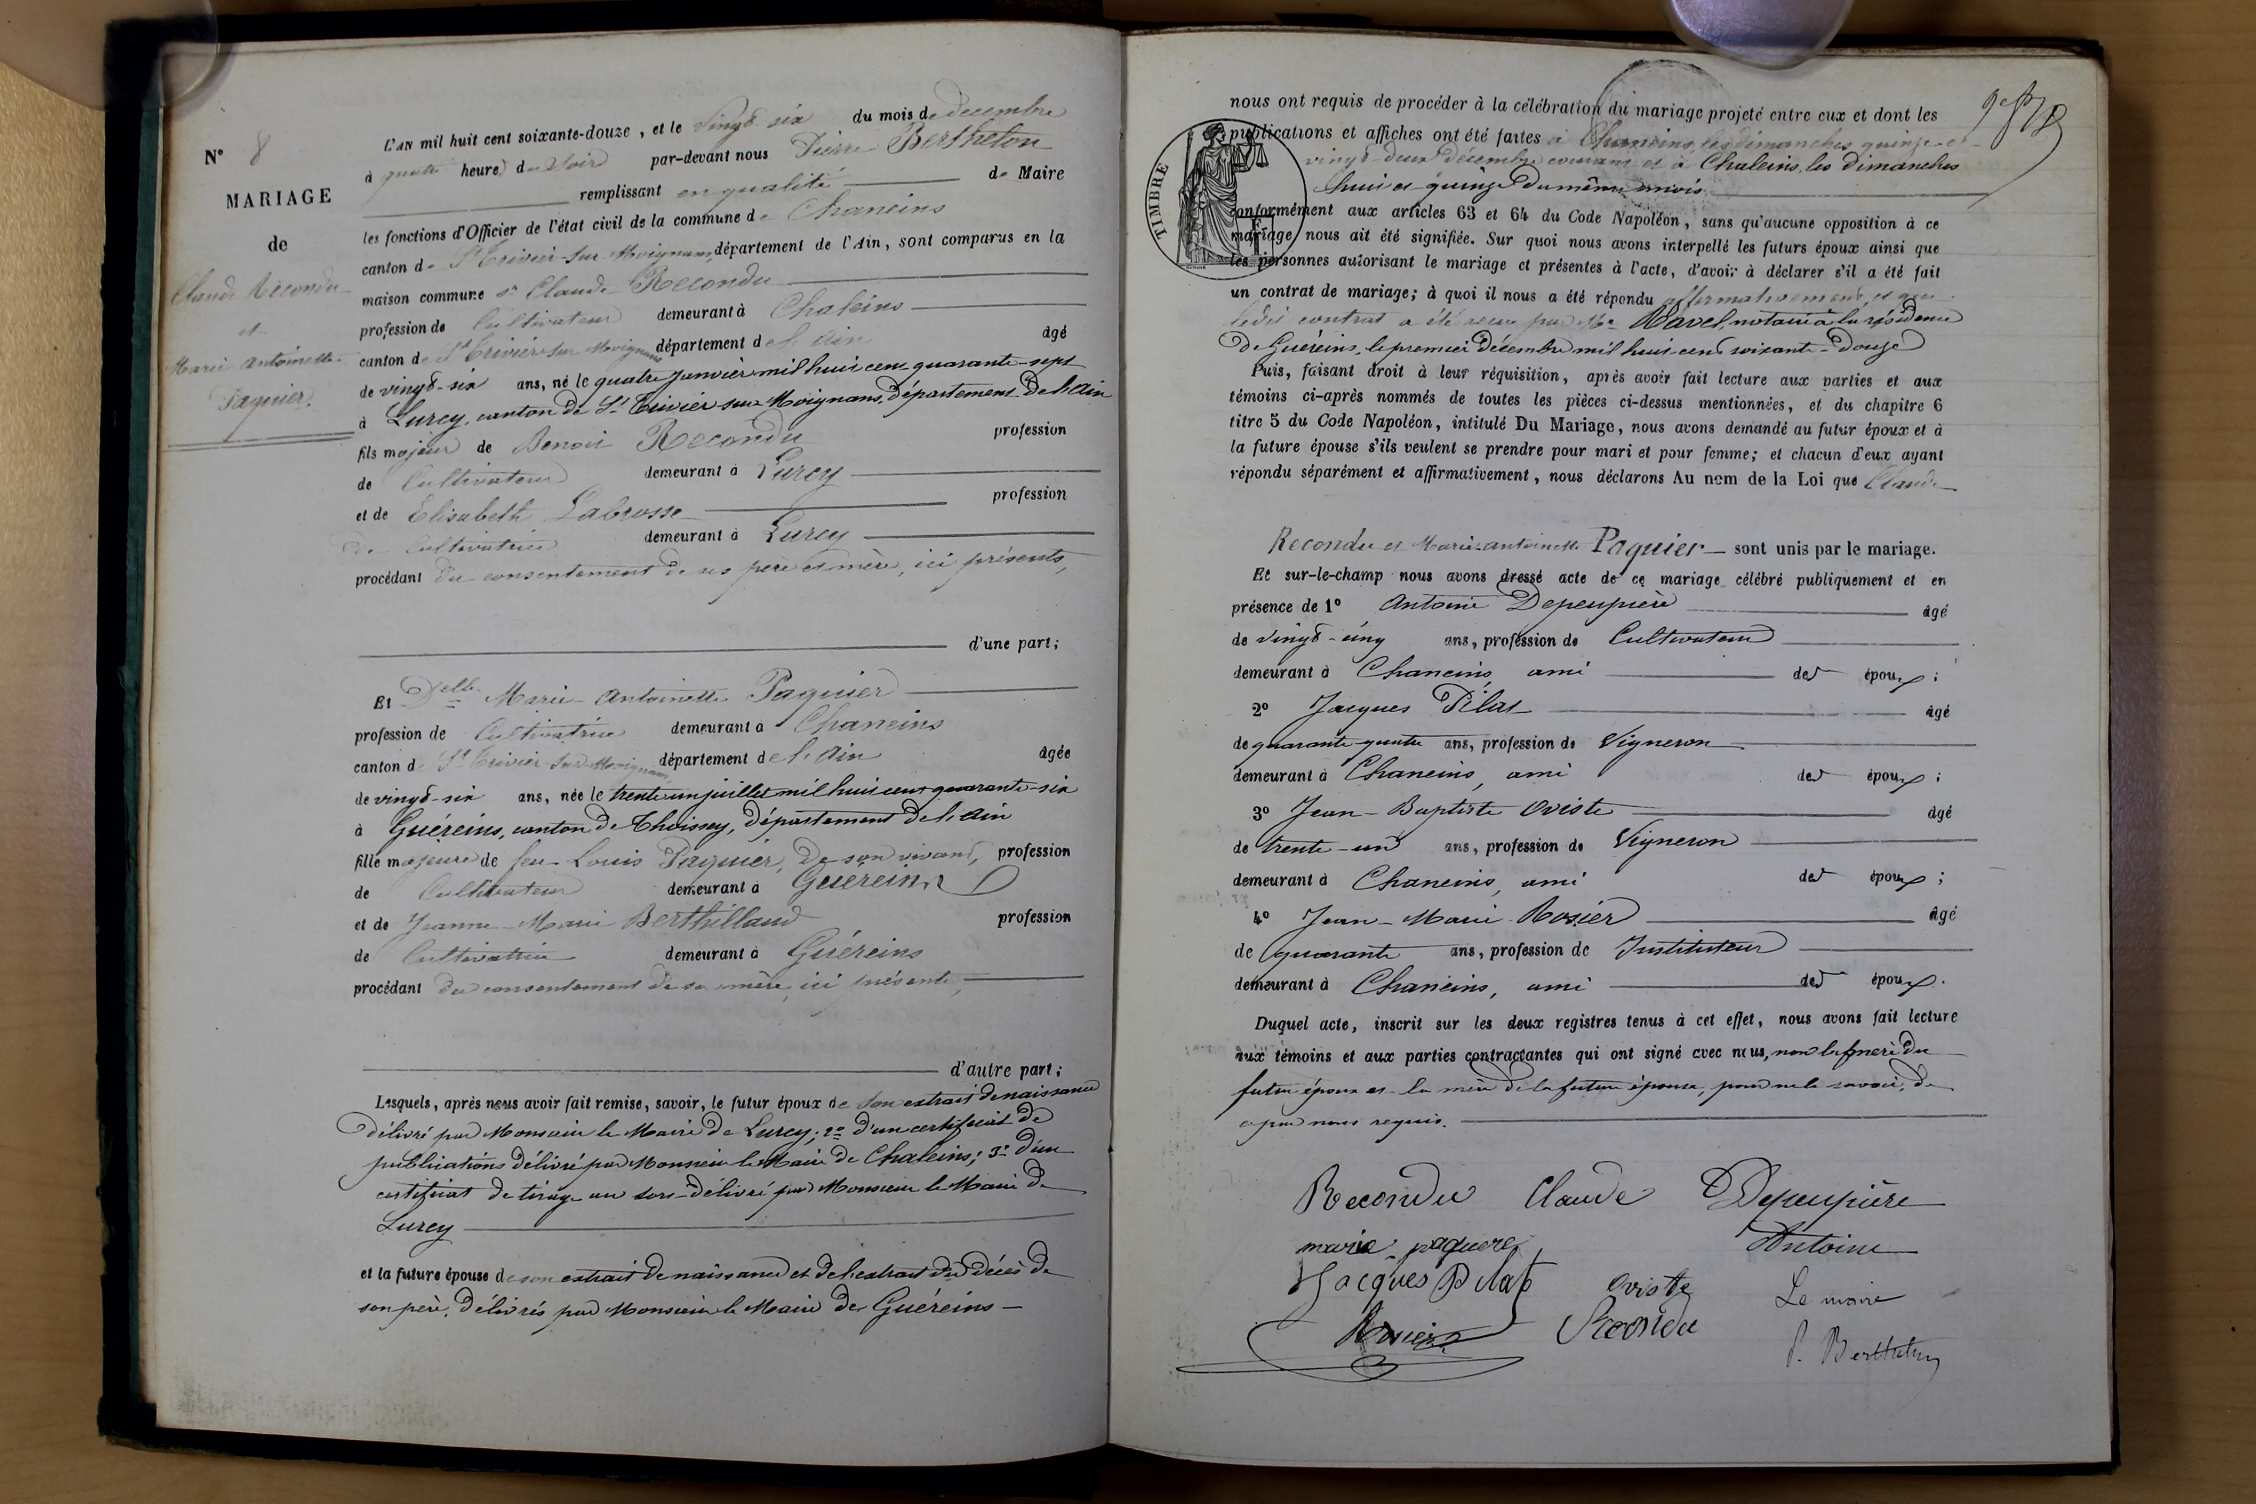 N° 8
MARIAGE
de
Claude Recondu
et
Marie Antoinette
Paquier.
L'AN mil huit cent soixante-douze, et le Vingt six du mois de décembre
à quatre heures du Soir par-devant nous Pierre Bertheton
remplissant en qualité de Maire
les fonctions d'Officier de l'état civil de la commune de Chaneins
canton de St Trivier-sur-Moignans, département de l'Ain, sont comparus en la
maison commune sr Claude Recondu
profession de Cultivateur demeurant à Chaleins
canton de St Trivier-sur-Moignans département de l'Ain âgé
de vingt-six ans, né le quatre Janvier mil huit cent quarante-sept
à Lurcy, canton de St Trivier sur Moignans, département de l'Ain
fils majeur de Benoit Recondu profession
de Cultivateur demeurant à Lurcy
et de Elisabeth Labrosse profession
de Cultivatrice demeurant à Lurcy
procédant du consentement de ses père et mère, ici présents,
d'une part;
Et Delle Marie-Antoinette Paquier
profession de Cultivatrice demeurant à Chaneins
canton de St Trivier-sur-Moignans, département de l'Ain âgée
de vingt-six ans, née le trente un juillet mil huit cent quarante-six
à Guéreins, canton de Thoissey, département de l'Ain
fille majeure de feu Louis Paquier, de son vivant, profession
de Cultivateur demeurant à Guéreins
et de Jeanne-Marie Berthilland profession
de Cultivatrice demeurant à Guéreins
procédant du consentement de sa mère, ici présente,
d'autre part;
Lesquels, après nous avoir fait remise, savoir, le futur époux de son extrait de naissance
délivré par Monsieur le Maire de Lurcy; 2° d'un certificat de
publications délivré par Monsieur le Maire de Chaleins; 3° d'un
certificat de tirage au sort délivré par Monsieur le Maire de
Lurcy
et la future épouse de son extrait de naissance et de l'extrait du décès de
son père, délivrés par Monsieur le Maire de Guéreins
nous ont requis de procéder à la célébration du mariage projeté entre eux et dont les
publications et affiches ont été faites à Chaneins, les dimanches quinze et
vingt-deux décembre courant et à Chaleins, les dimanches
huit et quinze du même mois
TIMBRE
conformément aux articles 63 et 64 du Code Napoléon, sans qu'aucune opposition à ce
mariage nous ait été signifiée. Sur quoi nous avons interpellé les futurs époux ainsi que
les personnes autorisant le mariage et présentes à l'acte, d'avoir à déclarer s'il a été fait
un contrat de mariage; à quoi il nous a été répondu affirmativement, et que
ledit contrat a été reçu par Me Ravel, notaire à la résidence
de Guéreins, le premier décembre mil huit cent soixante-douze
Puis, faisant droit à leur réquisition, après avoir fait lecture aux parties et aux
témoins ci-après nommés de toutes les pièces ci-dessus mentionnées, et du chapitre 6
titre 5 du Code Napoléon, intitulé Du Mariage, nous avons demandé au futur époux et à
la future épouse s'ils veulent se prendre pour mari et pour femme; et chacun d'eux ayant
répondu séparément et affirmativement, nous déclarons Au nom de la Loi que Claude
Recondu et Marie-Antoinette Paquier sont unis par le mariage.
Et sur-le-champ nous avons dressé acte de ce mariage célébré publiquement et en
présence de 1° Antoine Depeupière âgé
de vingt-cinq ans, profession de Cultivateur
demeurant à Chaneins, ami des époux;
2° Jacques Pilat âgé
de quarante quatre ans, profession de Vigneron
demeurant à Chaneins, ami des époux;
3° Jean-Baptiste Oviste âgé
de trente-un ans, profession de Vigneron
demeurant à Chaneins, ami des époux;
4° Jean-Marie Rosier âgé
de quarante ans, profession de Instituteur
demeurant à Chaneins, ami des époux.
Duquel acte, inscrit sur les deux registres tenus à cet effet, nous avons fait lecture
aux témoins et aux parties contractantes qui ont signé avec nous, non la mère du
futur époux et la mère de la future épouse, pour ne le savoir, de
ce par nous requis.
Recondu Claude Depeupière
marie paquere Antoine
Jacques Pilat Oviste Le maire
Rosier Recondu P. Bertheton